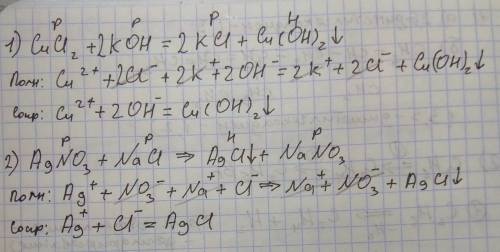 р р р н
1) CuCl₂ + 2KOH = 2KCl + Cu(OH)₂↓
Полн: Cu²⁺ + 2Cl⁻ + 2K⁺ + 2OH⁻ = 2K⁺ + 2Cl⁻ + Cu(OH)₂↓
Сокр: Cu²⁺ + 2OH⁻ = Cu(OH)₂↓
р р н р
2) AgNO₃ + NaCl ⇒ AgCl↓ + NaNO₃
Полн: Ag⁺ + NO₃⁻ + Na⁺ + Cl⁻ ⇒ Na⁺ + NO₃⁻ + AgCl↓
Сокр: Ag⁺ + Cl⁻ = AgCl